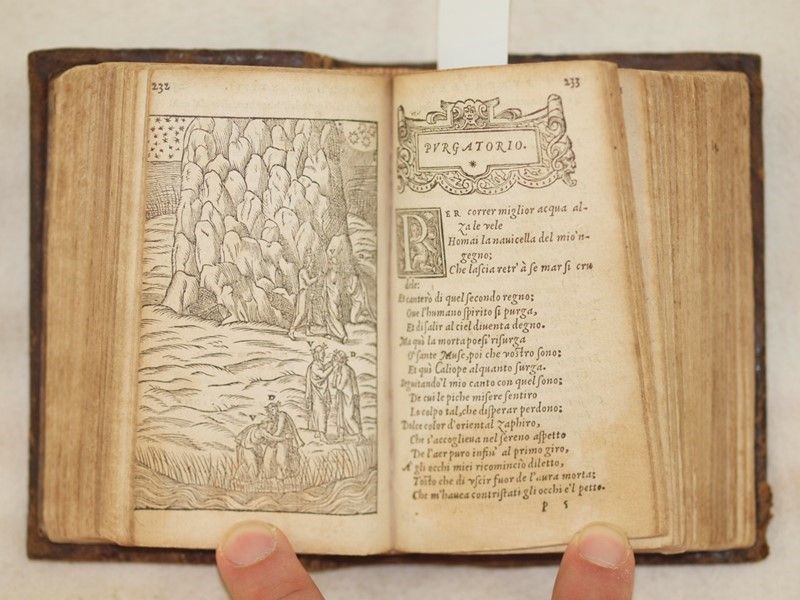 232
V
D
D
233
PVRGATORIO.
PER correr miglior acqua al-
za le vele
Homai la nauicella del mio'n-
gegno;
Che lascia retr' à se mar si cru
dele:
Et canterò di quel secondo regno;
Oue l'humano spirito si purga,
Et di salir al ciel diuenta degno.
Ma quì la morta poesi' risurga
O sante Muse, poi che vostro sono;
Et quì Caliope alquanto surga.
Seguitando'l mio canto con quel sono;
De cui le piche misere sentiro
Lo colpo tal, che disperar perdono;
Dolce color d'oriental Zaphiro,
Che s'accoglieua nel sereno aspetto
De l'aer puro infin' al primo giro,
A gli occhi miei ricominciò diletto,
Tosto che di vscir fuor de l'aura morta;
Che m'hauea contristati gli occhi e'l petto.
P 5